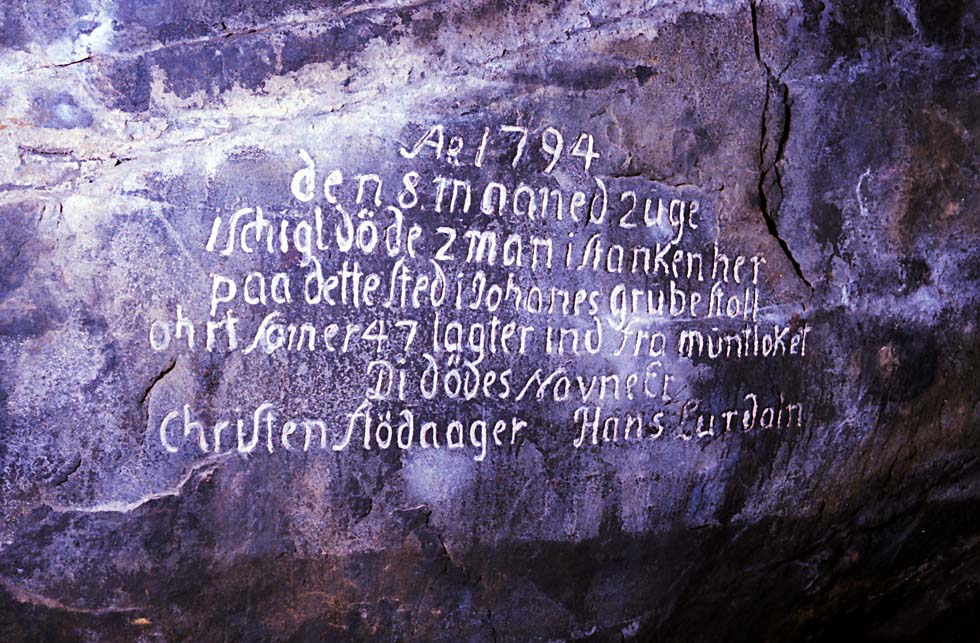 Ao 1794
den 8. maaned 2 uge
iſchigl döde 2 man i ſtanken her
paa dette ſted i Johanes grube ſtoll
ohrt ſom er 47 lagter ind fra muntloket
Di dödes Navne Er
Chriſten ſtödaager Hans Lurdaln